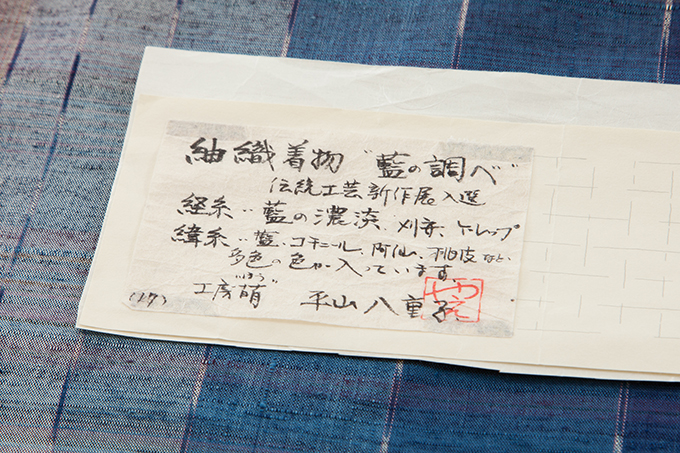 紬織着物 "藍の調べ"
伝統工芸新作展入選
経糸‥藍の濃淡、刈安、ケレップ
緯糸‥藍、コチニール、阿仙、桃皮など
多色の色が入っています
ほう
工房"萌" 平山八重子
やえ